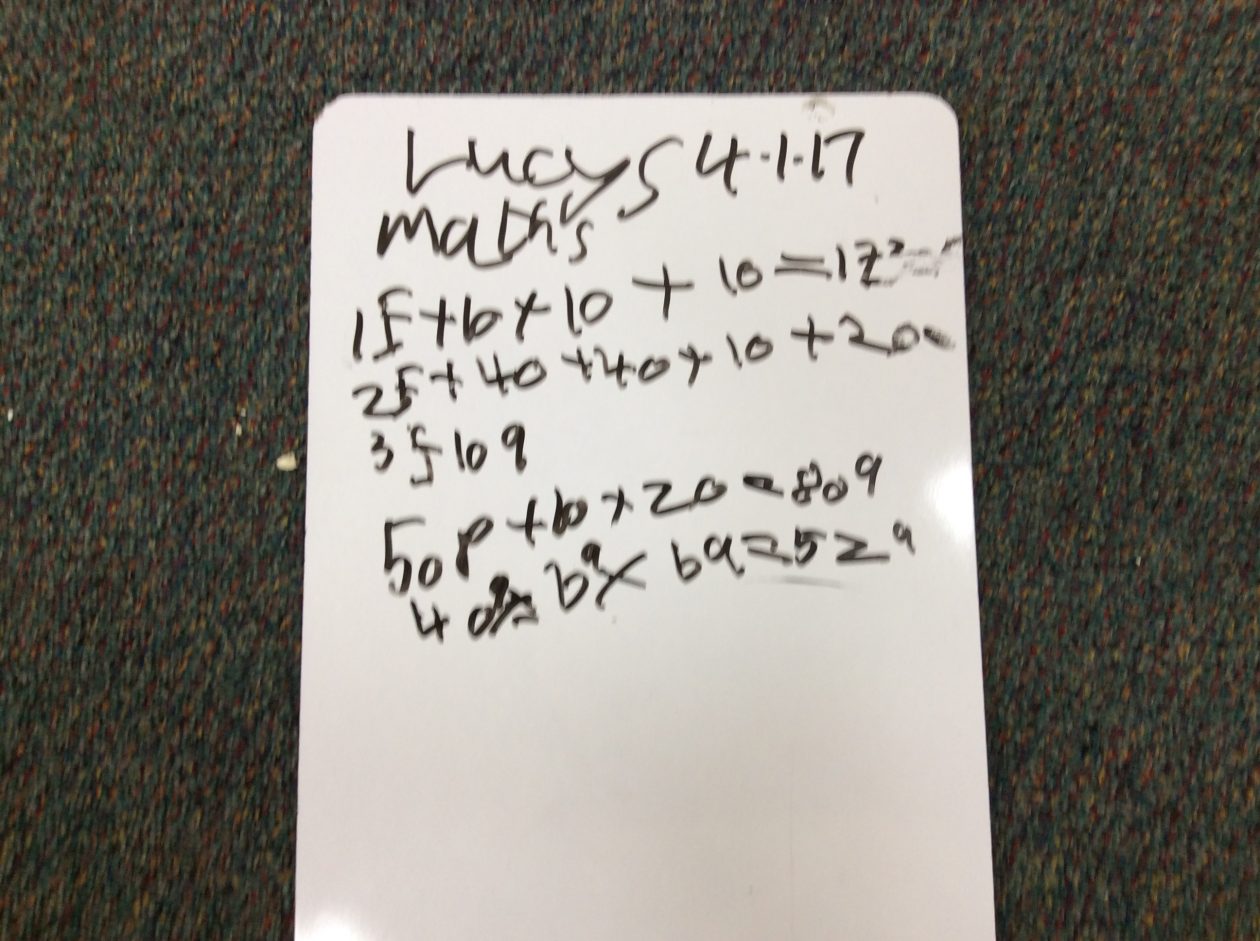 Lucy S 4.1.17
maths
1f+10+10+10=1
2f+40+40+10+20
3f109
50p+10+20=809
40 69+69=529